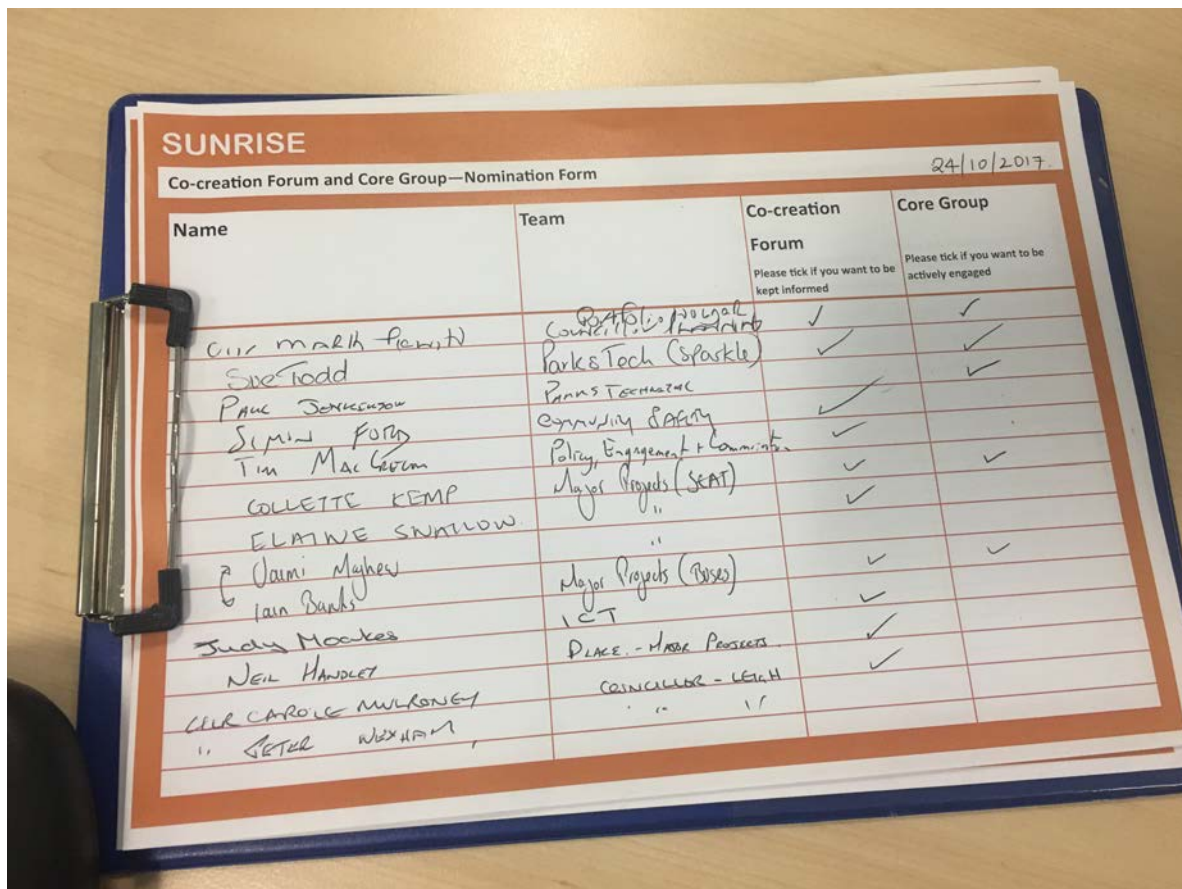 SUNRISE
Co-creation Forum and Core Group—Nomination Form 24/10/2017.
Name Team Co-creation Forum Core Group
Please tick if you want to be kept informed Please tick if you want to be actively engaged
Cllr MARK ✓ ✓
Sue Todd Parks Tech (Sparkle) ✓ ✓
PAUL JENKINSON PARKS TECHNICAL ✓
SIMON FORD COMMUNITY SAFETY ✓
TIM Policy, Engagement + ✓
COLLETTE KEMP Major Projects (SEAT) ✓ ✓
ELAINE SWALLOW " ✓
Jaimi Mayhew "
Iain Banks Major Projects (Buses) ✓ ✓
Judy Moakes ICT ✓
NEIL HANDLEY PLACE. - MAJOR PROJECTS. ✓
CLLR CAROLE MULRONEY COUNCILLOR - LEIGH ✓
" PETER WEXHAM " "